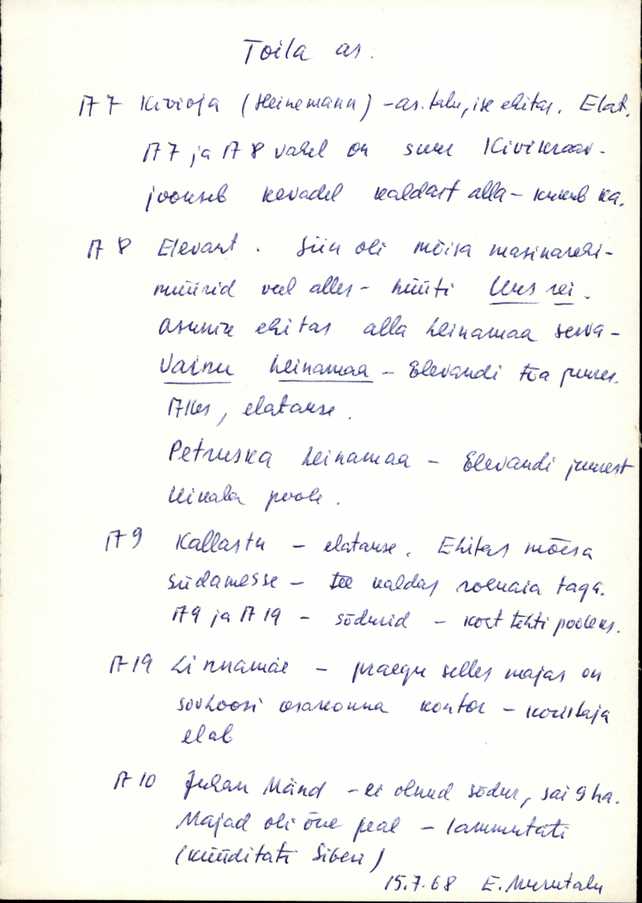 Toila as.
A 7 Kivioja (Heinemann) - as. talu, ise ehitas. Elat.
A 7 ja A 8 vahel on suur Kivikraav -
jookseb kevadel kaldast alla - kuiub ka.
A 8 Elevant. Siin oli mõisa masinarehi-
müürid veel alles - hüüti Uus rei.
Asunik ehitas alla heinamaa serva -
Vainu heinamaa - Elevandi toa juures.
Akes, elatakse.
Petruska heinamaa - Elevandi juurest
poole.
A 9 Kallastu - elatakse. Ehitas mõisa
südamesse - kaldas roehaia taga.
A 9 ja A 19 - sõdurid - koht tehti pooleks.
A 19 Linnamäe - praegu selles majas on
sovhoosi osakonna kontor - koristaja
elab
A 10 Juhan Mänd - ei olnud sõdur, sai 9 ha.
Majad oli õue peal - lammutati
(küüditati Siberi)
15.7.68 E. Murutalu